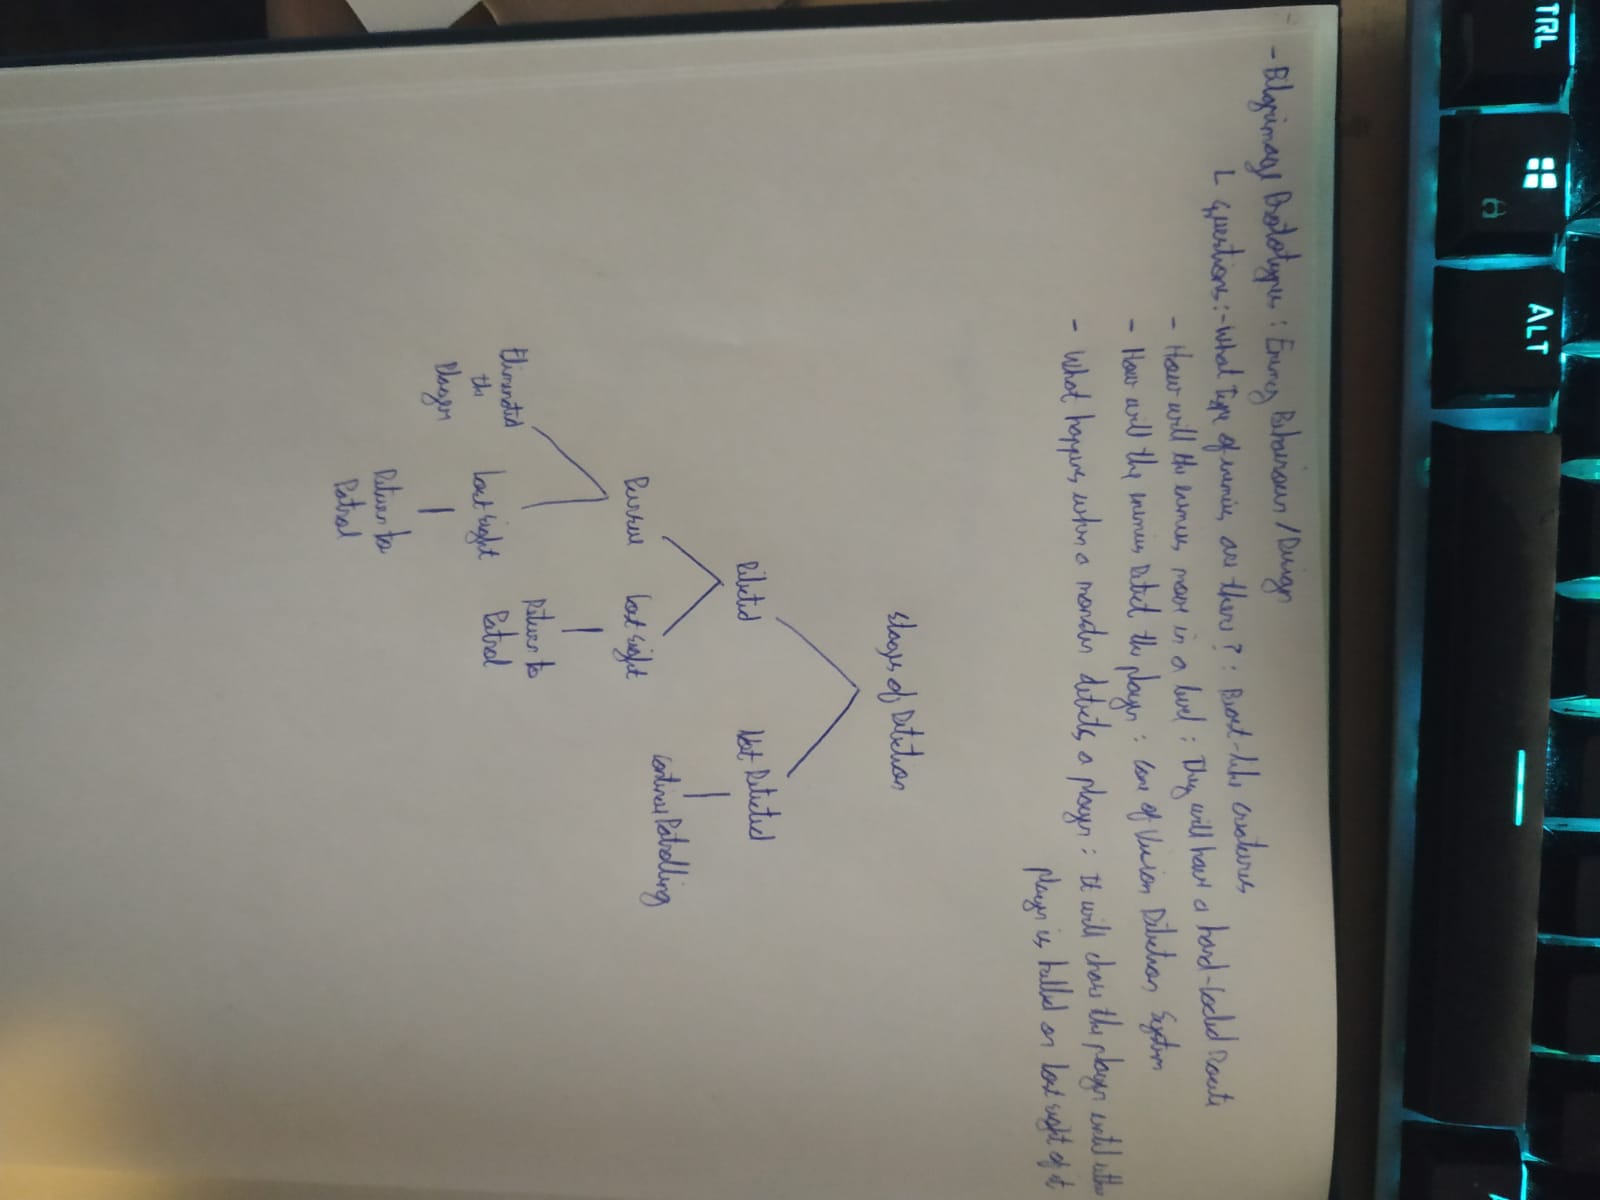 TRL
ALT
- Pilgrimage Prototypes : Enemy Behaviour / Design
L Questions :- What Type of enemies are there ? : Beast-like creatures
- How will the enemies move in a level : They will have a hard-coded Route
- How will the enemies Detect the player : Cone of Vision Detection System
- What happens when a monster detects a player : It will chase the player until either
player is killed or lost sight of it
Stages of Detection
Detected
Not Detected
Continue Patrolling
Pursue
Lost Sight
Return to
Patrol
Eliminated
the
Player
Lost Sight
Return to
Patrol